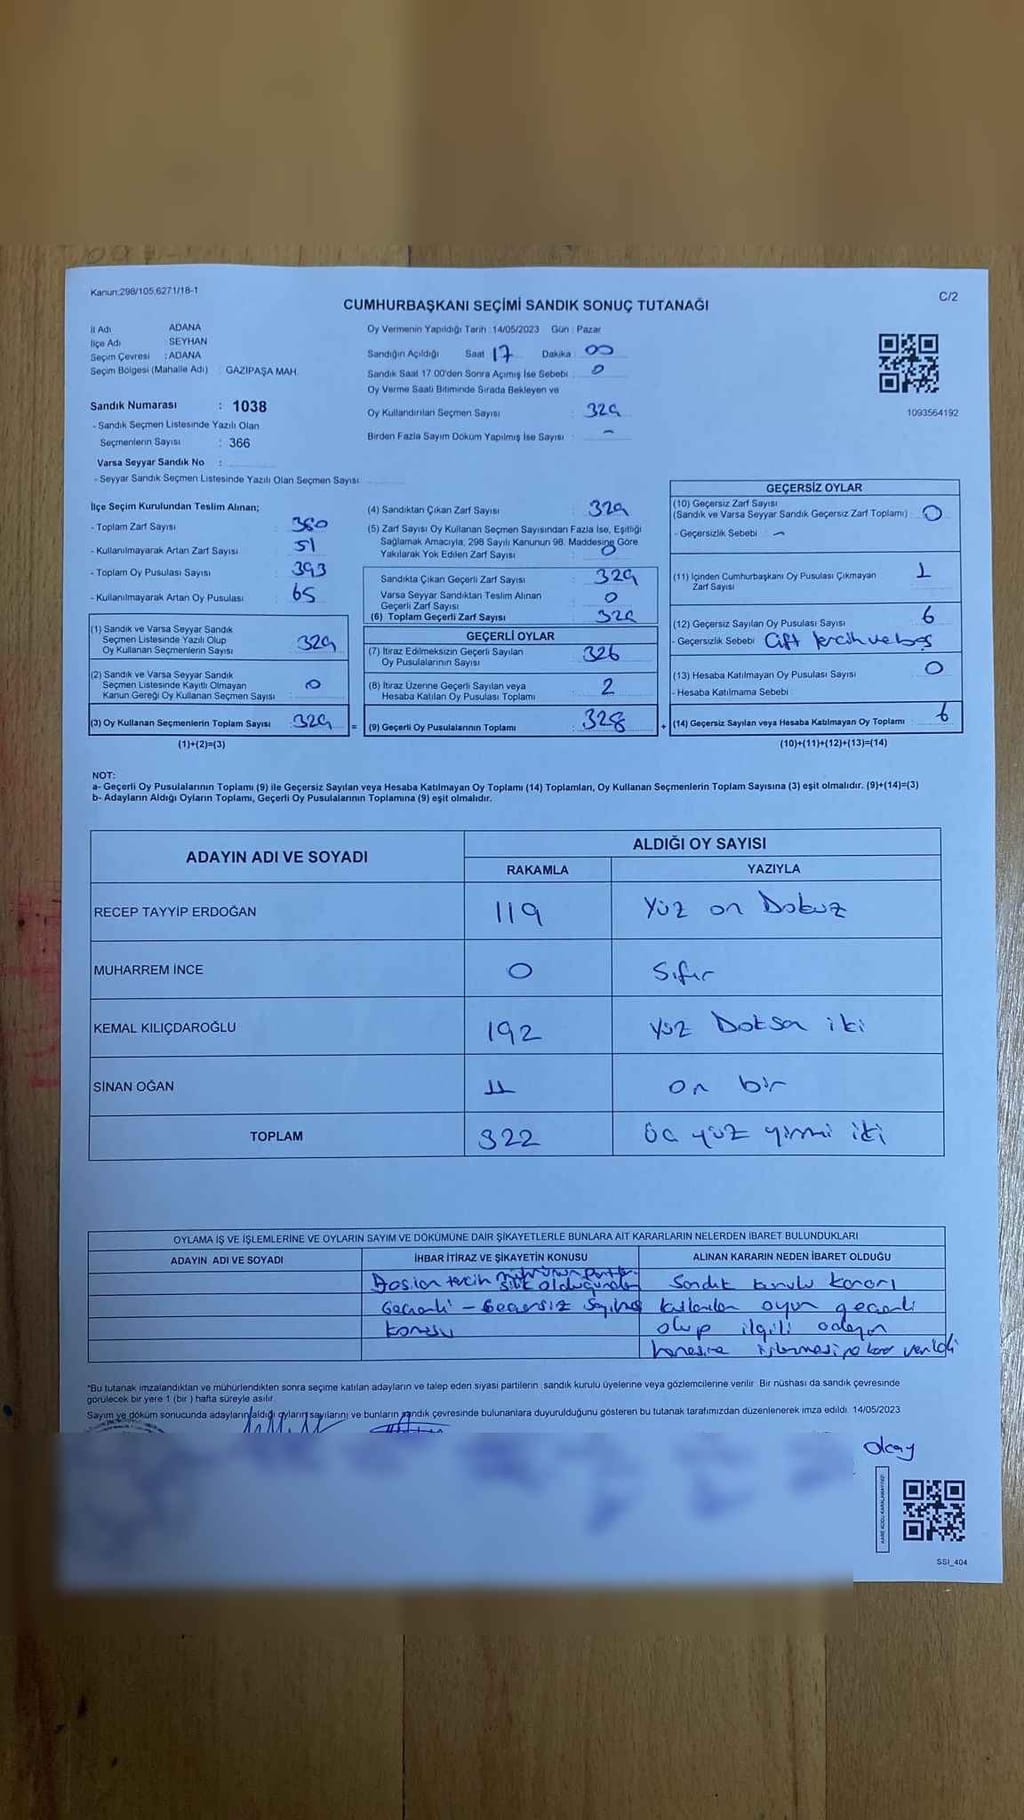 Kanun:298/105,6271/18-1
C/2
CUMHURBAŞKANI SEÇİMİ SANDIK SONUÇ TUTANAĞI
İl Adı ADANA
İlçe Adı SEYHAN
Seçim Çevresi : ADANA
Seçim Bölgesi (Mahalle Adı) GAZİPAŞA MAH.
Sandık Numarası : 1038
- Sandık Seçmen Listesinde Yazılı Olan
Seçmenlerin Sayısı : 366
Varsa Seyyar Sandık No :
- Seyyar Sandık Seçmen Listesinde Yazılı Olan Seçmen Sayısı
Oy Vermenin Yapıldığı Tarih : 14/05/2023 Gün : Pazar
Sandığın Açıldığı Saat 17 Dakika 00
Sandık Saat 17:00'den Sonra Açımış İse Sebebi 0
Oy Verme Saati Bitiminde Sırada Bekleyen ve
Oy Kullandırılan Seçmen Sayısı : 329
Birden Fazla Sayım Döküm Yapılmış İse Sayısı : -
1093564192
İlçe Seçim Kurulundan Teslim Alınan;
- Toplam Zarf Sayısı : 380
- Kullanılmayarak Artan Zarf Sayısı : 51
- Toplam Oy Pusulası Sayısı : 393
- Kullanılmayarak Artan Oy Pusulası : 65
(1) Sandık ve Varsa Seyyar Sandık
Seçmen Listesinde Yazılı Olup
Oy Kullanan Seçmenlerin Sayısı : 329
(2) Sandık ve Varsa Seyyar Sandık
Seçmen Listesinde Kayıtlı Olmayan
Kanun Gereği Oy Kullanan Seçmen Sayısı : 0
(3) Oy Kullanan Seçmenlerin Toplam Sayısı : 329 =
(1)+(2)=(3)
(4) Sandıktan Çıkan Zarf Sayısı : 329
(5) Zarf Sayısı Oy Kullanan Seçmen Sayısından Fazla İse, Eşitliği
Sağlamak Amacıyla, 298 Sayılı Kanunun 98. Maddesine Göre
Yakılarak Yok Edilen Zarf Sayısı : 0
Sandıkta Çıkan Geçerli Zarf Sayısı : 329
Varsa Seyyar Sandıktan Teslim Alınan
Geçerli Zarf Sayısı : 0
(6) Toplam Geçerli Zarf Sayısı : 329
GEÇERLİ OYLAR
(7) İtiraz Edilmeksizin Geçerli Sayılan
Oy Pusulalarının Sayısı : 326
(8) İtiraz Üzerine Geçerli Sayılan veya
Hesaba Katılan Oy Pusulası Toplamı : 2
(9) Geçerli Oy Pusulalarının Toplamı : 328 +
GEÇERSİZ OYLAR
(10) Geçersiz Zarf Sayısı
(Sandık ve Varsa Seyyar Sandık Geçersiz Zarf Toplamı) : 0
- Geçersizlik Sebebi : -
(11) İçinden Cumhurbaşkanı Oy Pusulası Çıkmayan
Zarf Sayısı : 1
(12) Geçersiz Sayılan Oy Pusulası Sayısı : 6
- Geçersizlik Sebebi Çift tercih ve boş
(13) Hesaba Katılmayan Oy Pusulası Sayısı : 0
- Hesaba Katılmama Sebebi
(14) Geçersiz Sayılan veya Hesaba Katılmayan Oy Toplamı : 6
(10)+(11)+(12)+(13)=(14)
NOT:
a- Geçerli Oy Pusulalarının Toplamı (9) ile Geçersiz Sayılan veya Hesaba Katılmayan Oy Toplamı (14) Toplamları, Oy Kullanan Seçmenlerin Toplam Sayısına (3) eşit olmalıdır. (9)+(14)=(3)
b- Adayların Aldığı Oyların Toplamı, Geçerli Oy Pusulalarının Toplamına (9) eşit olmalıdır.
ADAYIN ADI VE SOYADI ALDIĞI OY SAYISI
RAKAMLA YAZIYLA
RECEP TAYYİP ERDOĞAN 119 Yüz on Dokuz
MUHARREM İNCE 0 Sıfır
KEMAL KILIÇDAROĞLU 192 Yüz Doksa iki
SİNAN OĞAN 11 on bir
TOPLAM 322 Üç yüz yirmi iki
OYLAMA İŞ VE İŞLEMLERİNE VE OYLARIN SAYIM VE DÖKÜMÜNE DAİR ŞİKAYETLERLE BUNLARA AİT KARARLARIN NELERDEN İBARET BULUNDUKLARI
ADAYIN ADI VE SOYADI İHBAR İTİRAZ VE ŞİKAYETİN KONUSU ALINAN KARARIN NEDEN İBARET OLDUĞU
tercih silik olduğundan Sandık kurulu kararı
Geçerli - Geçersiz kullanılan oyun geçerli
konusu olup ilgili adayın
hanesine karar verildi
*Bu tutanak imzalandıktan ve mühürlendikten sonra seçime katılan adayların ve talep eden siyasi partilerin sandık kurulu üyelerine veya gözlemcilerine verilir. Bir nüshası da sandık çevresinde
görülecek bir yere 1 (bir ) hafta süreyle asılır.
Sayım ve döküm sonucunda adayların aldığı oyların sayılarını ve bunların sandık çevresinde bulunanlara duyurulduğunu gösteren bu tutanak tarafımızdan düzenlenerek imza edildi. 14/05/2023
olcay
SSI_404